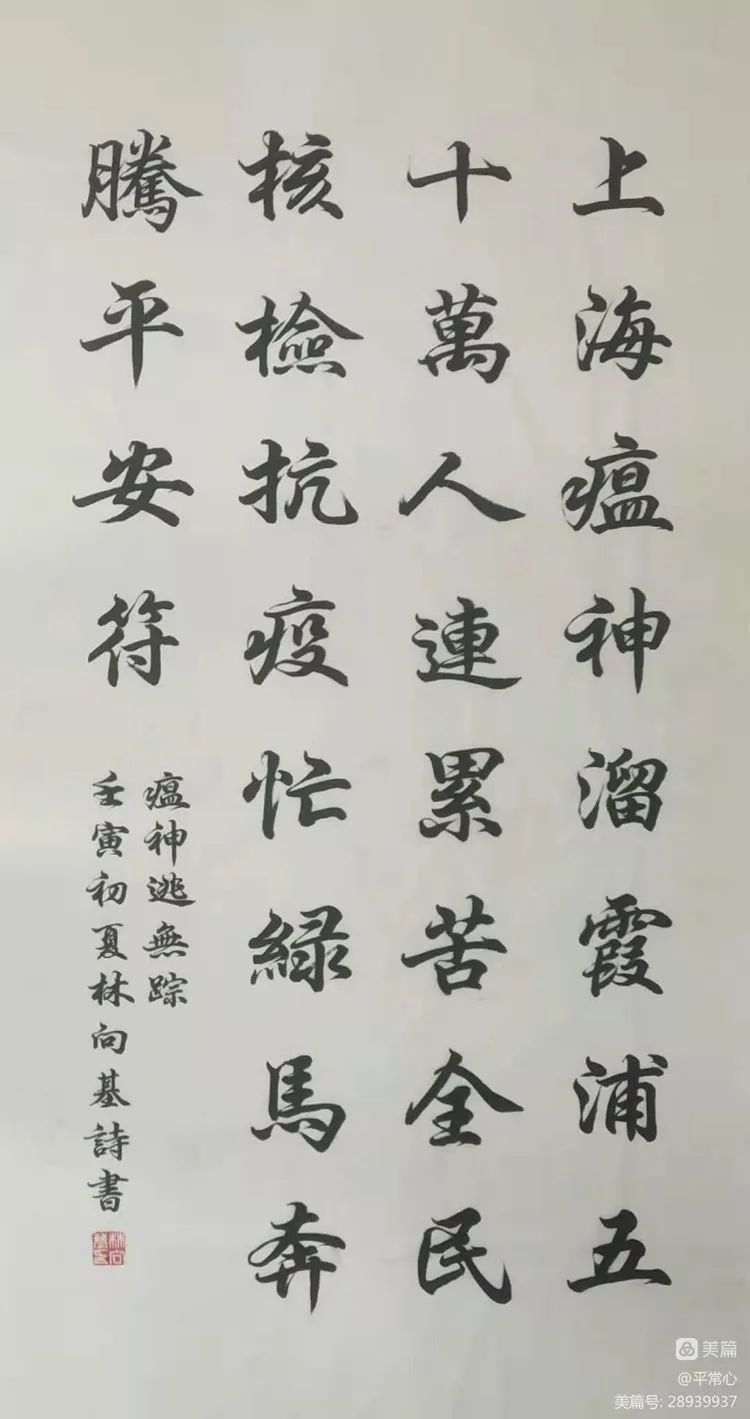 上海瘟神溜霞浦五
十萬人連累苦全民
核檢抗疫忙緑馬奔
騰平安符
瘟神逃無踪
壬寅初夏林向基詩書
美篇
@平常心
美篇号: 28939937